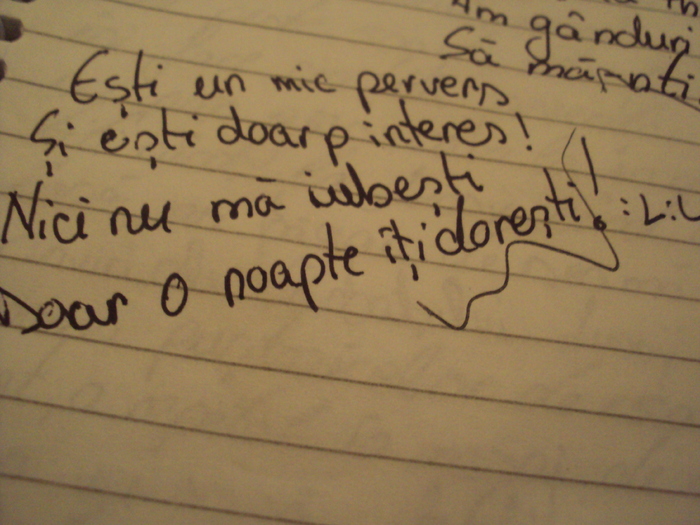 Am gânduri
Să
Ești un mic pervers
Și ești doar p interes!
Nici nu mă iubești
Doar o noapte îți dorești! :L:L